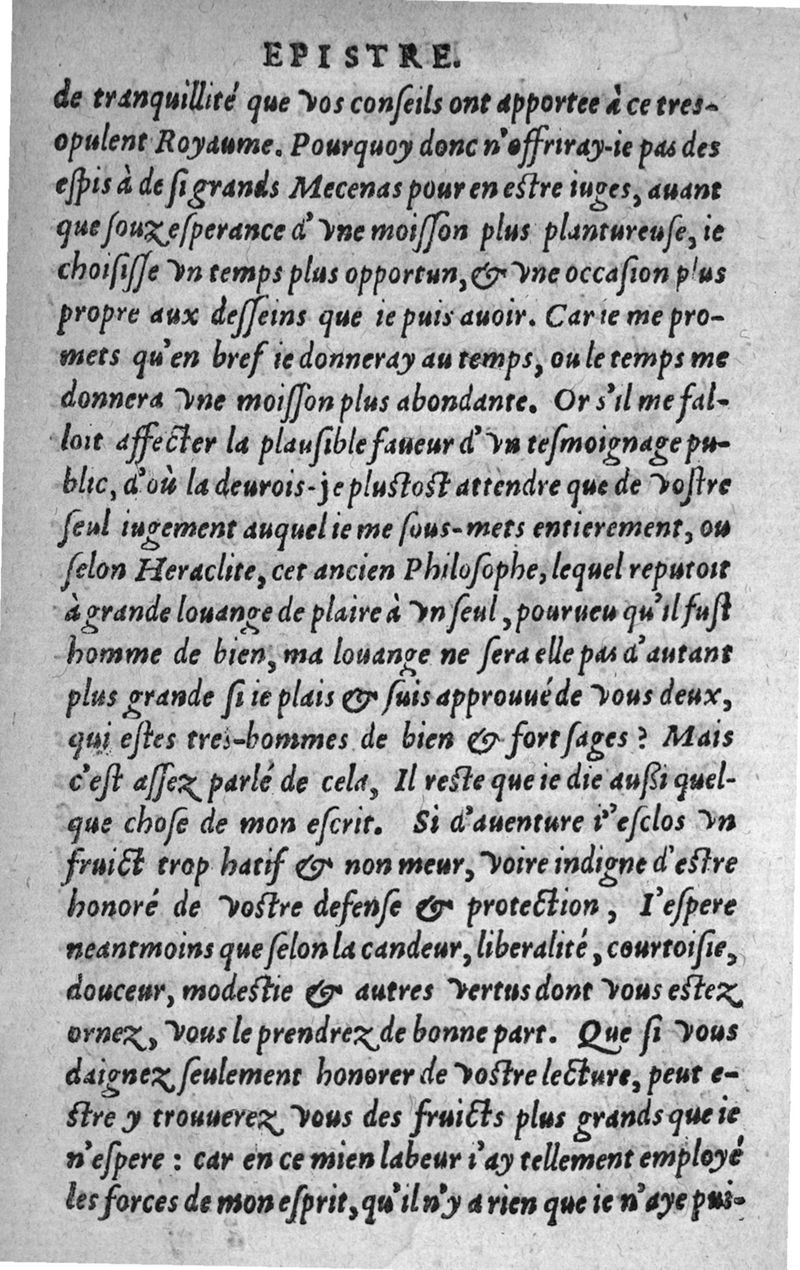 EPISTRE.
de tranquillité que vos conſeils ont apportee à ce tres-
opulent Royaume. Pourquoy donc n'offriray-ie pas des
eſpis à de ſi grands Mecenas pour en eſtre iuges, auant
que ſouz eſperance d'vne moiſſon plus plantureuſe, ie
choiſiſſe vn temps plus opportun, & vne occaſion plus
propre aux deſſeins que ie puis auoir. Car ie me pro-
mets qu'en bref ie donneray au temps, ou le temps me
donnera vne moiſſon plus abondante. Or s'il me fal-
loit affecter la plauſible faueur d'vn teſmoignage pu-
blic, d'où la deurois-je pluſtoſt attendre que de voſtre
ſeul iugement auquel ie me ſous-mets entierement, ou
ſelon Heraclite, cet ancien Philoſophe, lequel reputoit
à grande louange de plaire à vn ſeul, pourueu qu'il fuſt
homme de bien, ma louange ne ſera elle pas d'autant
plus grande ſi ie plais & ſuis approuué de vous deux,
qui eſtes tres-hommes de bien & fort ſages? Mais
c'eſt aſſez parlé de cela, Il reſte que ie die auſſi quel-
que choſe de mon eſcrit. Si d'auenture i'eſclos vn
fruict trop hatif & non meur, voire indigne d'eſtre
honoré de voſtre defenſe & protection, I'eſpere
neantmoins que ſelon la candeur, liberalité, courtoiſie,
douceur, modeſtie & autres vertus dont vous eſtez
ornez, vous le prendrez de bonne part. Que ſi vous
daignez ſeulement honorer de voſtre lecture, peut e-
ſtre y trouuerez vous des fruicts plus grands que ie
n'eſpere : car en ce mien labeur i'ay tellement employé
les forces de mon eſprit, qu'il n'y a rien que ie n'aye pui-